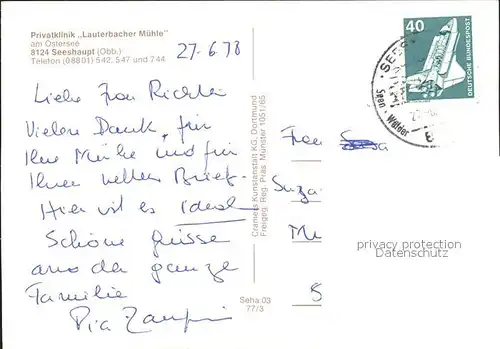 Privatklinik „Lauterbacher Mühle"
am Ostersee
8124 Seeshaupt (Obb.)
Telefon (08801) 542, 547 und 744
27.6.78
Liebe Frau Richter
Vielen Dank, für
Ihre Mühe und für
Ihren netten Brief.
Hier ist es ideal
Schöne Grüsse
an die ganze
Familie
Pia
Cramers Kunstanstalt KG, Dortmund
Freigeg. Reg. Präs. Münster 1051/65
Seha.03
77/3
40
DEUTSCHE BUNDESPOST
Seen
Wälder
Frau
Suza
Mü
S
privacy protection
Datenschutz